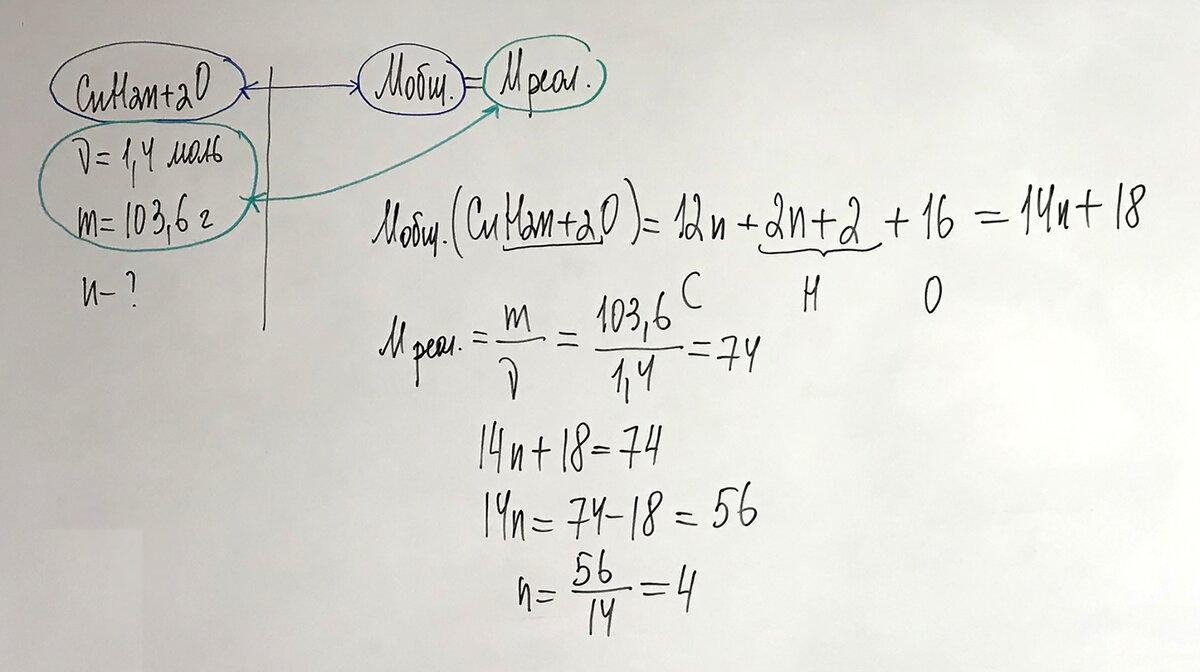 CnH2n+2O
Mобщ. = Mреал.
ν = 1,4 моль
m = 103,6 г
n - ?
Mобщ. (CnH2n+2O) = 12n + 2n+2 + 16 = 14n + 18
C H O
Mреал. = m/ν = 103,6/1,4 = 74
14n + 18 = 74
14n = 74 - 18 = 56
n = 56/14 = 4